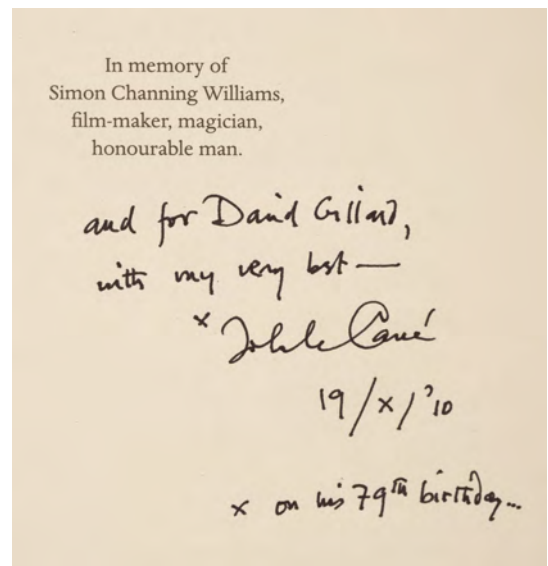 In memory of
Simon Channing Williams,
film-maker, magician,
honourable man.
and for David Gillard,
with my very best —
x John le Carré
19/x/'10
x on his 79th birthday...